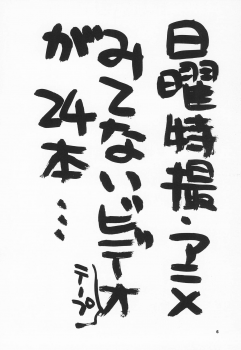 日曜特撮・アニメ
がみてないビデオ
テープ
24本…